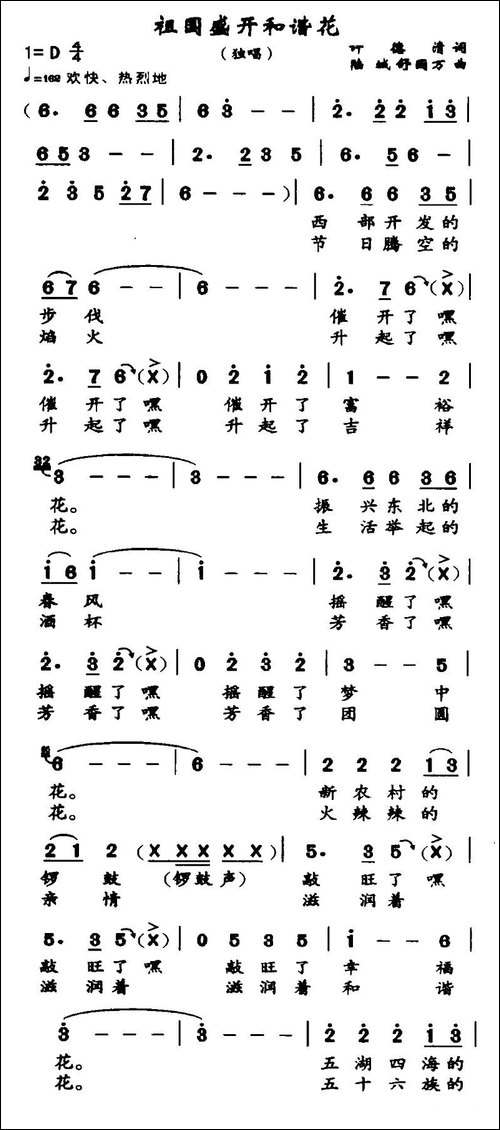 祖国盛开和谐花
1=D 4/4 （独唱） 德清 词
♩=162 欢快、热烈地 陆城 舒国万 曲
（6· 6 6 3 5 | 6 3 - - | 2· 2 2 1 3 |
6 5 3 - - | 2· 2 3 5 | 6· 5 6 - |
2 3 5 2 7 | 6 - - ） | 6· 6 6 3 5 |
西 部 开 发 的
节 日 腾 空 的
6 7 6 - - | 6 - - - | 2· 7 6 （X） |
步 伐 催 开 了 嘿
焰 火 升 起 了 嘿
2· 7 6 （X） | 0 2 1 2 | 1 - - 2 |
催 开 了 嘿 催 开 了 富 裕
升 起 了 嘿 升 起 了 吉 祥
3 - - - | 3 - - - | 6· 6 6 3 6 |
花。 振 兴 东 北 的
花。 生 活 举 起 的
1 6 1 - - | 1 - - - | 2· 3 2 （X） |
春 风 摇 醒 了 嘿
酒 杯 芳 香 了 嘿
2· 3 2 （X） | 0 2 3 2 | 3 - - 5 |
摇 醒 了 嘿 摇 醒 了 梦 中
芳 香 了 嘿 芳 香 了 团 圆
6 - - - | 6 - - - | 2 2 2 1 3 |
花。 新 农 村 的
花。 火 辣 辣 的
2 1 2 （X X X X X） | 5· 3 5 （X） |
锣 鼓 （锣 鼓 声） 敲 旺 了 嘿
亲 情 滋 润 着
5· 3 5 （X） | 0 5 3 5 | 1 - - 6 |
敲 旺 了 嘿 敲 旺 了 幸 福
滋 润 着 滋 润 着 和 谐
3 - - - | 3 - - - | 2 2 2 1 3 |
花。 五 湖 四 海 的
花。 五 十 六 族 的